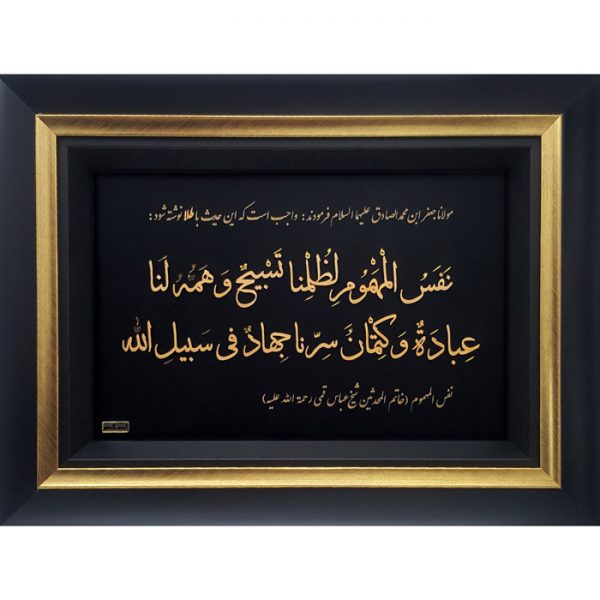 مولانا جعفر ابن محمد الصادق علیهما السلام فرمودند: واجب است که این حدیث با طلا نوشته شود:
نَفَسُ الْمَهْمُومِ لِظُلْمِنا تَسْبِيحٌ وَ هَمُّهُ لَنا
عِبادَةٌ وَ كِتْمانُ سِرِّنا جِهادٌ فی سَبيلِ الله
نفس المهموم (خاتم المحدثین شیخ عباس قمی رحمة الله علیه)